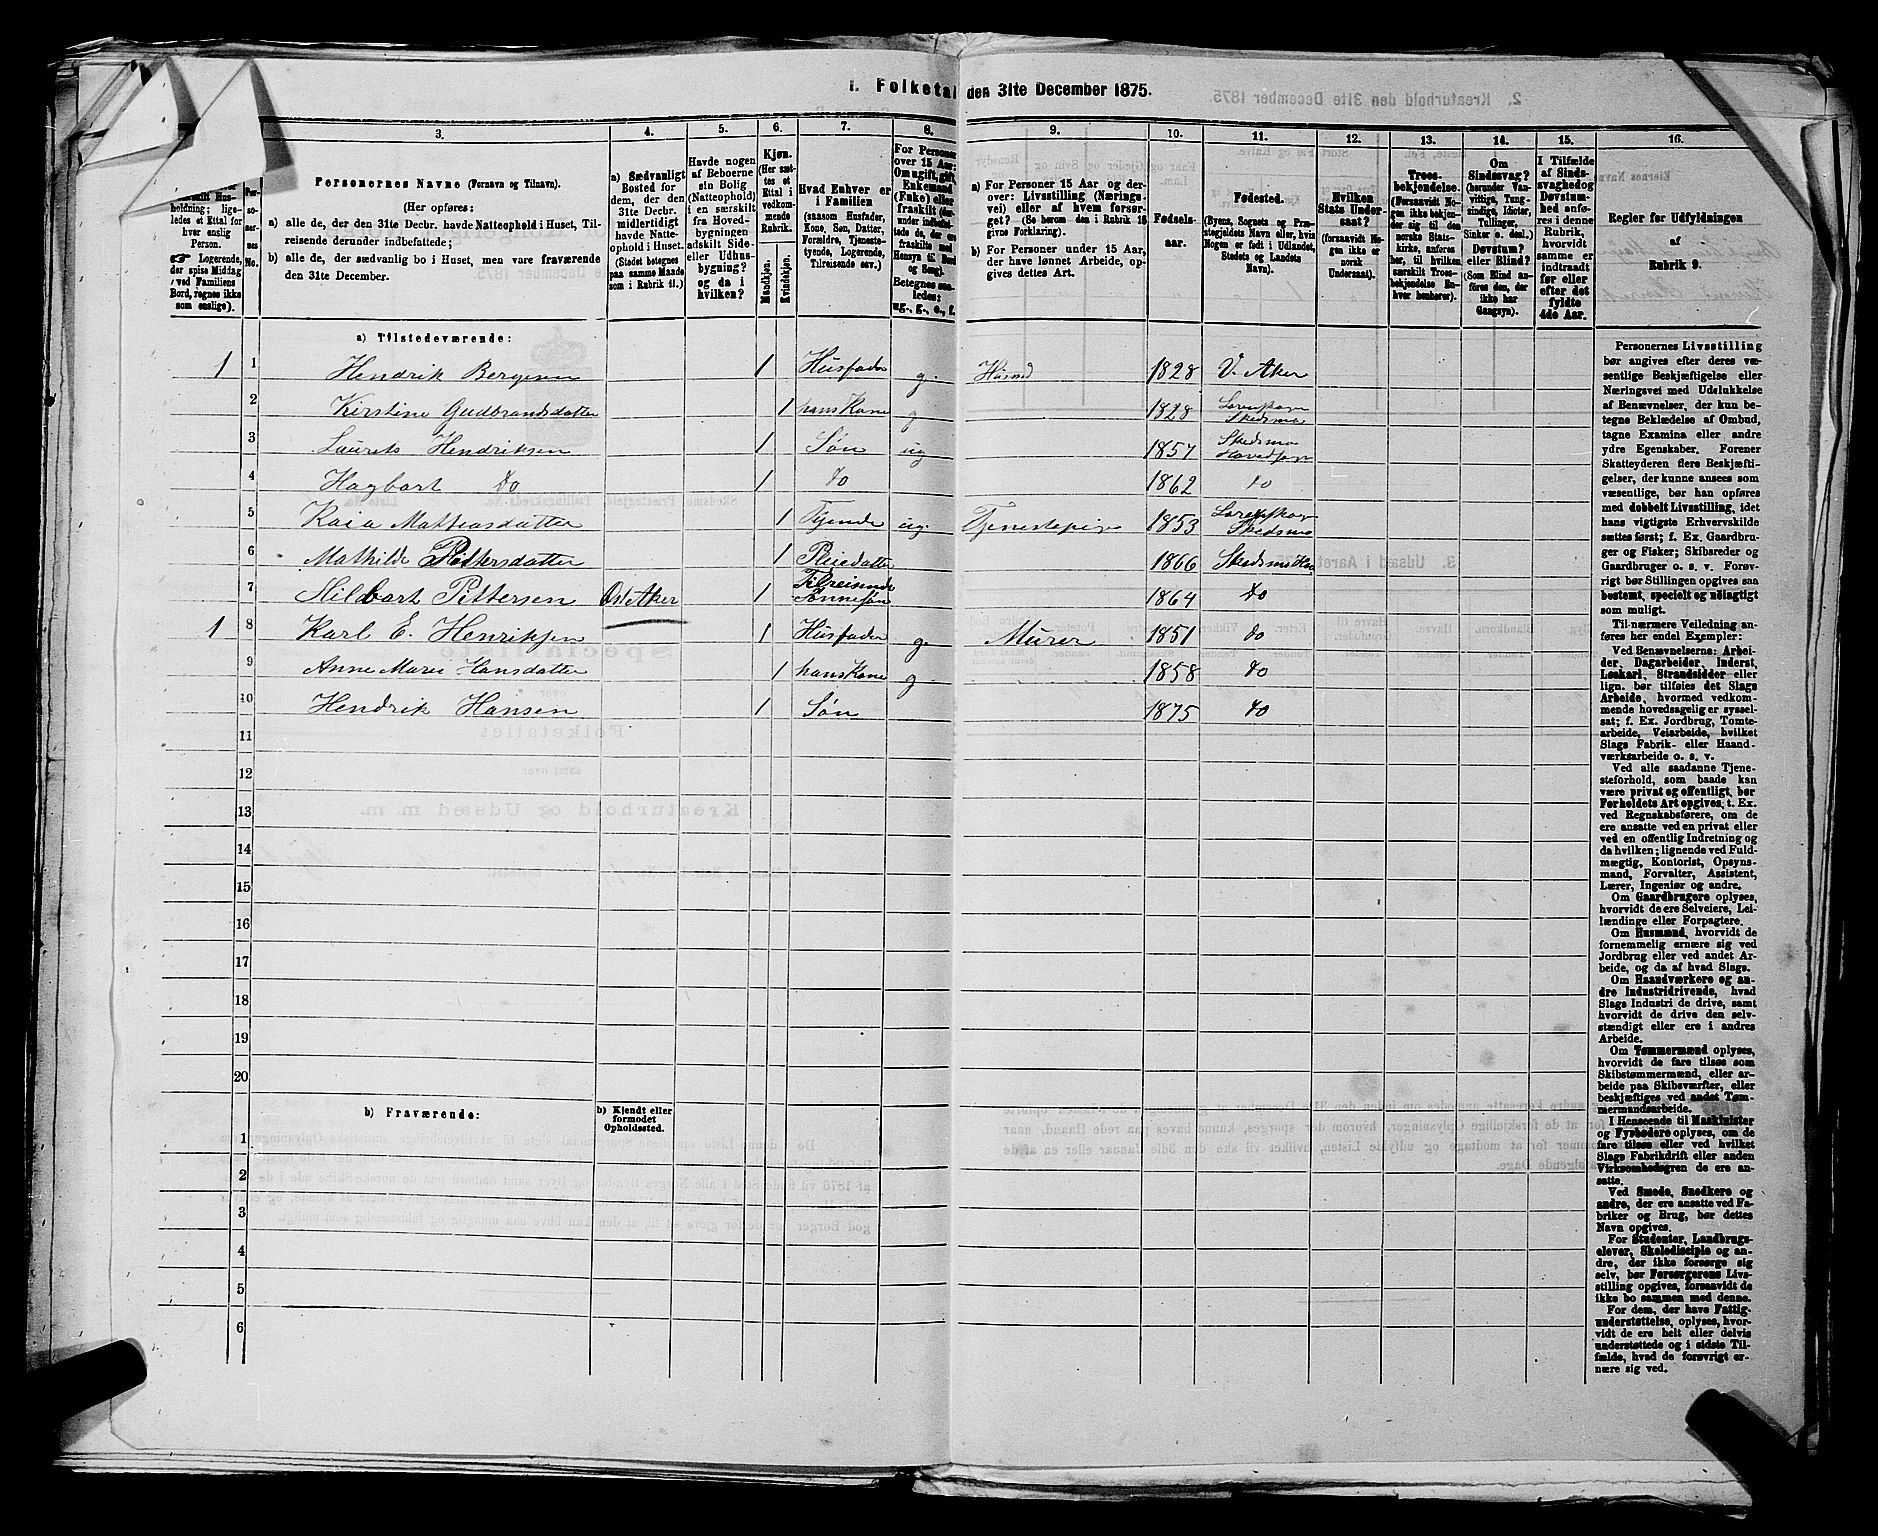 1. Folketal den 31te December 1875.
3.
4.
5.
6.
7.
8.
9.
10.
11.
12.
13.
14.
15.
16.
holdning; lige-
ledes et Ettal for
hver enslig
Person.
Logerende,
der spise Middag
ved Familiens
Bord, regnes ikke
som enslige).
Per-
so-
ner-
nes
No.
Personernes Navne (Fornavn og Tilnavn).
(Her opføres:
a) alle de, der den 31te Decbr. havde Natteophold i Huset, Til-
reisende derunder indbefattede;
b) alle de, der sædvanlig bo i Huset, men vare fraværende
den 31te December.
a) Sædvanligt
Bosted for
dem, der den
31te Decbr.
midlertidigt
havde Natte-
ophold i Huset.
(Stedet betegnes
paa samme Maade
som i Rubrik 11.)
Havde nogen
af Beboerne
sin Bolig
(Natteophold)
i en særskilt
fra Hoved-
bygningen
adskilt Side-
eller Udhus-
bygning?
og da i
hvilken?
Kjøn.
(Her sæt-
tes et
Ettal i
vedkom-
mende
Rubrik.
Mandkjøn.
Kvindekjøn.
Hvad Enhver er
i Familien
(saasom Husfader,
Kone, Søn, Datter,
Forældre, Tjeneste-
tyende, Logerende,
Tilreisende osv.)
For Personer
over 15 Aar:
Om ugift, gift,
Enkemand
(Enke) eller
fraskilt
Betegnes saa-
ledes:
ug., g., e., f.
a) For Personer 15 Aar og der-
over: Livsstilling (Nærings-
vei) eller af hvem forsør-
get (Se herom den i Rubrik 16
givne Forklaring).
b) For Personer under 15 Aar,
der have lønnet Arbeide, op-
gives dettes Art.
Fødsels-
aar.
Fødested.
(Byens, Sognets og Præ-
stegjeldets Navn eller, hvis
Nogen er født i Udlandet,
Stedets og Landets
Navn).
Hvilken
Stats Under-
saat?
(forsaavidt No-
gen ikke er
norsk
Undersaat).
Troes-
bekjendelse.
(Forsaavidt No-
gen ikke bekjen-
der sig til den
norske Stats-
kirke, anføres
her, til hvilken
særskilt Troes-
bekjendelse En-
hver henhører).
Om
Sindssvag?
(herunder Van-
vittige, Tung-
sindige, Idioter,
Tullinger,
Sinker o. desl.)
Døvstum?
eller Blind?
(Som Blind an-
føres den, der
ikke har
Gangsyn).
I Tilfælde
af Sinds-
svaghed og
Døvstum-
hed anfø-
res i denne
Rubrik,
hvorvidt
samme er
indtraadt
før eller
efter det
fyldte
4de Aar.
Regler for Udfyldningen
af
Rubrik 9.
a) Tilstedeværende:
1 1 Hendrik Bergesen 1 Husfader g. Husmd 1828 V. Aker
2 Kirstine Gudbrandsdatter 1 hans Kone g 1828 Lørenskogen Skedsmo
3 Laurets Hendriksen 1 Søn ug 1857 Skedsmo Hovedsogn
4 Hagbart do 1 do 1862 do
5 Kaia Mattiasdatter 1 Tyende ug. Tjenestepige 1853 Lørenskog Skedsmo
6 Mathilde Pettersdatter 1 Pleiedatter 1866 Skedsmo
7 Hilbart Pettersen Ost Aker 1 Tilreisende Sønnesøn 1864 do
1 8 Karl E. Henriksen 1 Husfader g. Murer 1851 do
9 Anne Marie Hansdatter 1 hans Kone g 1858 do
10 Hendrik Hansen 1 Søn 1875 do
11
12
13
14
15
16
17
18
19
20
b) Fraværende:
b) Kjendt eller
formodet
Opholdssted.
1
2
3
4
5
6
Personernes Livsstilling
bør angives efter deres væ-
sentlige Beskjæftigelse eller
Næringsvei med Udelukkelse
af Benævnelser, der kun be-
tegne Beklædelse af Ombud,
tagne Examina eller andre
ydre Egenskaber. Forener
Skatteyderen flere Beskjæfti-
gelser, der kunne ansees som
væsentlige, bør han opføres
med dobbelt Livsstilling, idet
hans vigtigste Erhvervskilde
sættes først; f. Ex. Gaardbru-
ger og Fisker; Skibsreder og
Gaardbruger o. s. v. Forøv-
rigt bør Stillingen opgives saa
bestemt, specielt og nøiagtigt
som muligt.
Til nærmere Veiledning an-
føres her endel Exempler:
Ved Benævnelserne: Arbei-
der, Dagarbeider, Inderst,
Løskarl, Strandsidder eller
lign. bør tilføies det Slags
Arbeide, hvormed vedkom-
mende hovedsagelig er syssel-
sat; f. Ex. Jordbrug, Tomte-
arbeide, Veiarbeide, hvilket
Slags Fabrik- eller Haand-
værksarbeide o. s. v.
Ved alle saadanne Tjene-
steforhold, som baade kan
være privat og offentligt, bør
Forholdets Art opgives, t. Ex.
ved Regnskabsførere, om de
ere ansatte ved en privat eller
ved en offentlig Indretning og
da hvilken; lignende ved Fuld-
mægtig, Kontorist, Opsyns-
mand, Forvalter, Assistent,
Lærer, Ingeniør og andre.
Om Gaardbrugere oplyses,
hvorvidt de ere Selveiere, Lei-
lændinge eller Forpagtere.
Om Husmænd, hvorvidt de
fornemmelig ernære sig ved
Jordbrug eller ved andet Ar-
beide, og da af hvad Slags.
Om Haandværkere og an-
dre Industridrivende, hvad
Slags Industri de drive, samt
hvorvidt de drive den selv-
stændigt eller ere i andres
Arbeide.
Om Tømmermænd oplyses,
hvorvidt de fare tilsøs som
Skibstømmermænd, eller ar-
beide paa Skibsværfter, eller
beskjæftiges ved andet Tøm-
mermandsarbeide.
I Henseende til Maskinister
og Fyrbødere oplyses, om de
fare tilsøs eller ved hvilket
Slags Fabrikdrift eller anden
Virksomhedsgren de ere an-
satte.
Ved Smede, Snedkere og
andre, der ere ansatte ved Fa-
briker og Brug, bør dettes
Navn opgives.
For Studenter, Landbrugs-
elever, Skoledisciple og an-
dre, der ikke forsørge sig
selv, bør Forsørgerens Livs-
stilling opgives, forsaavidt de
ikke bo sammen med denne.
For dem, der have Fattig-
understøttelse, oplyses, hvor-
vidt de ere helt eller delvis
understøttede og i sidste Til-
fælde, hvad de forøvrigt er-
nære sig ved.